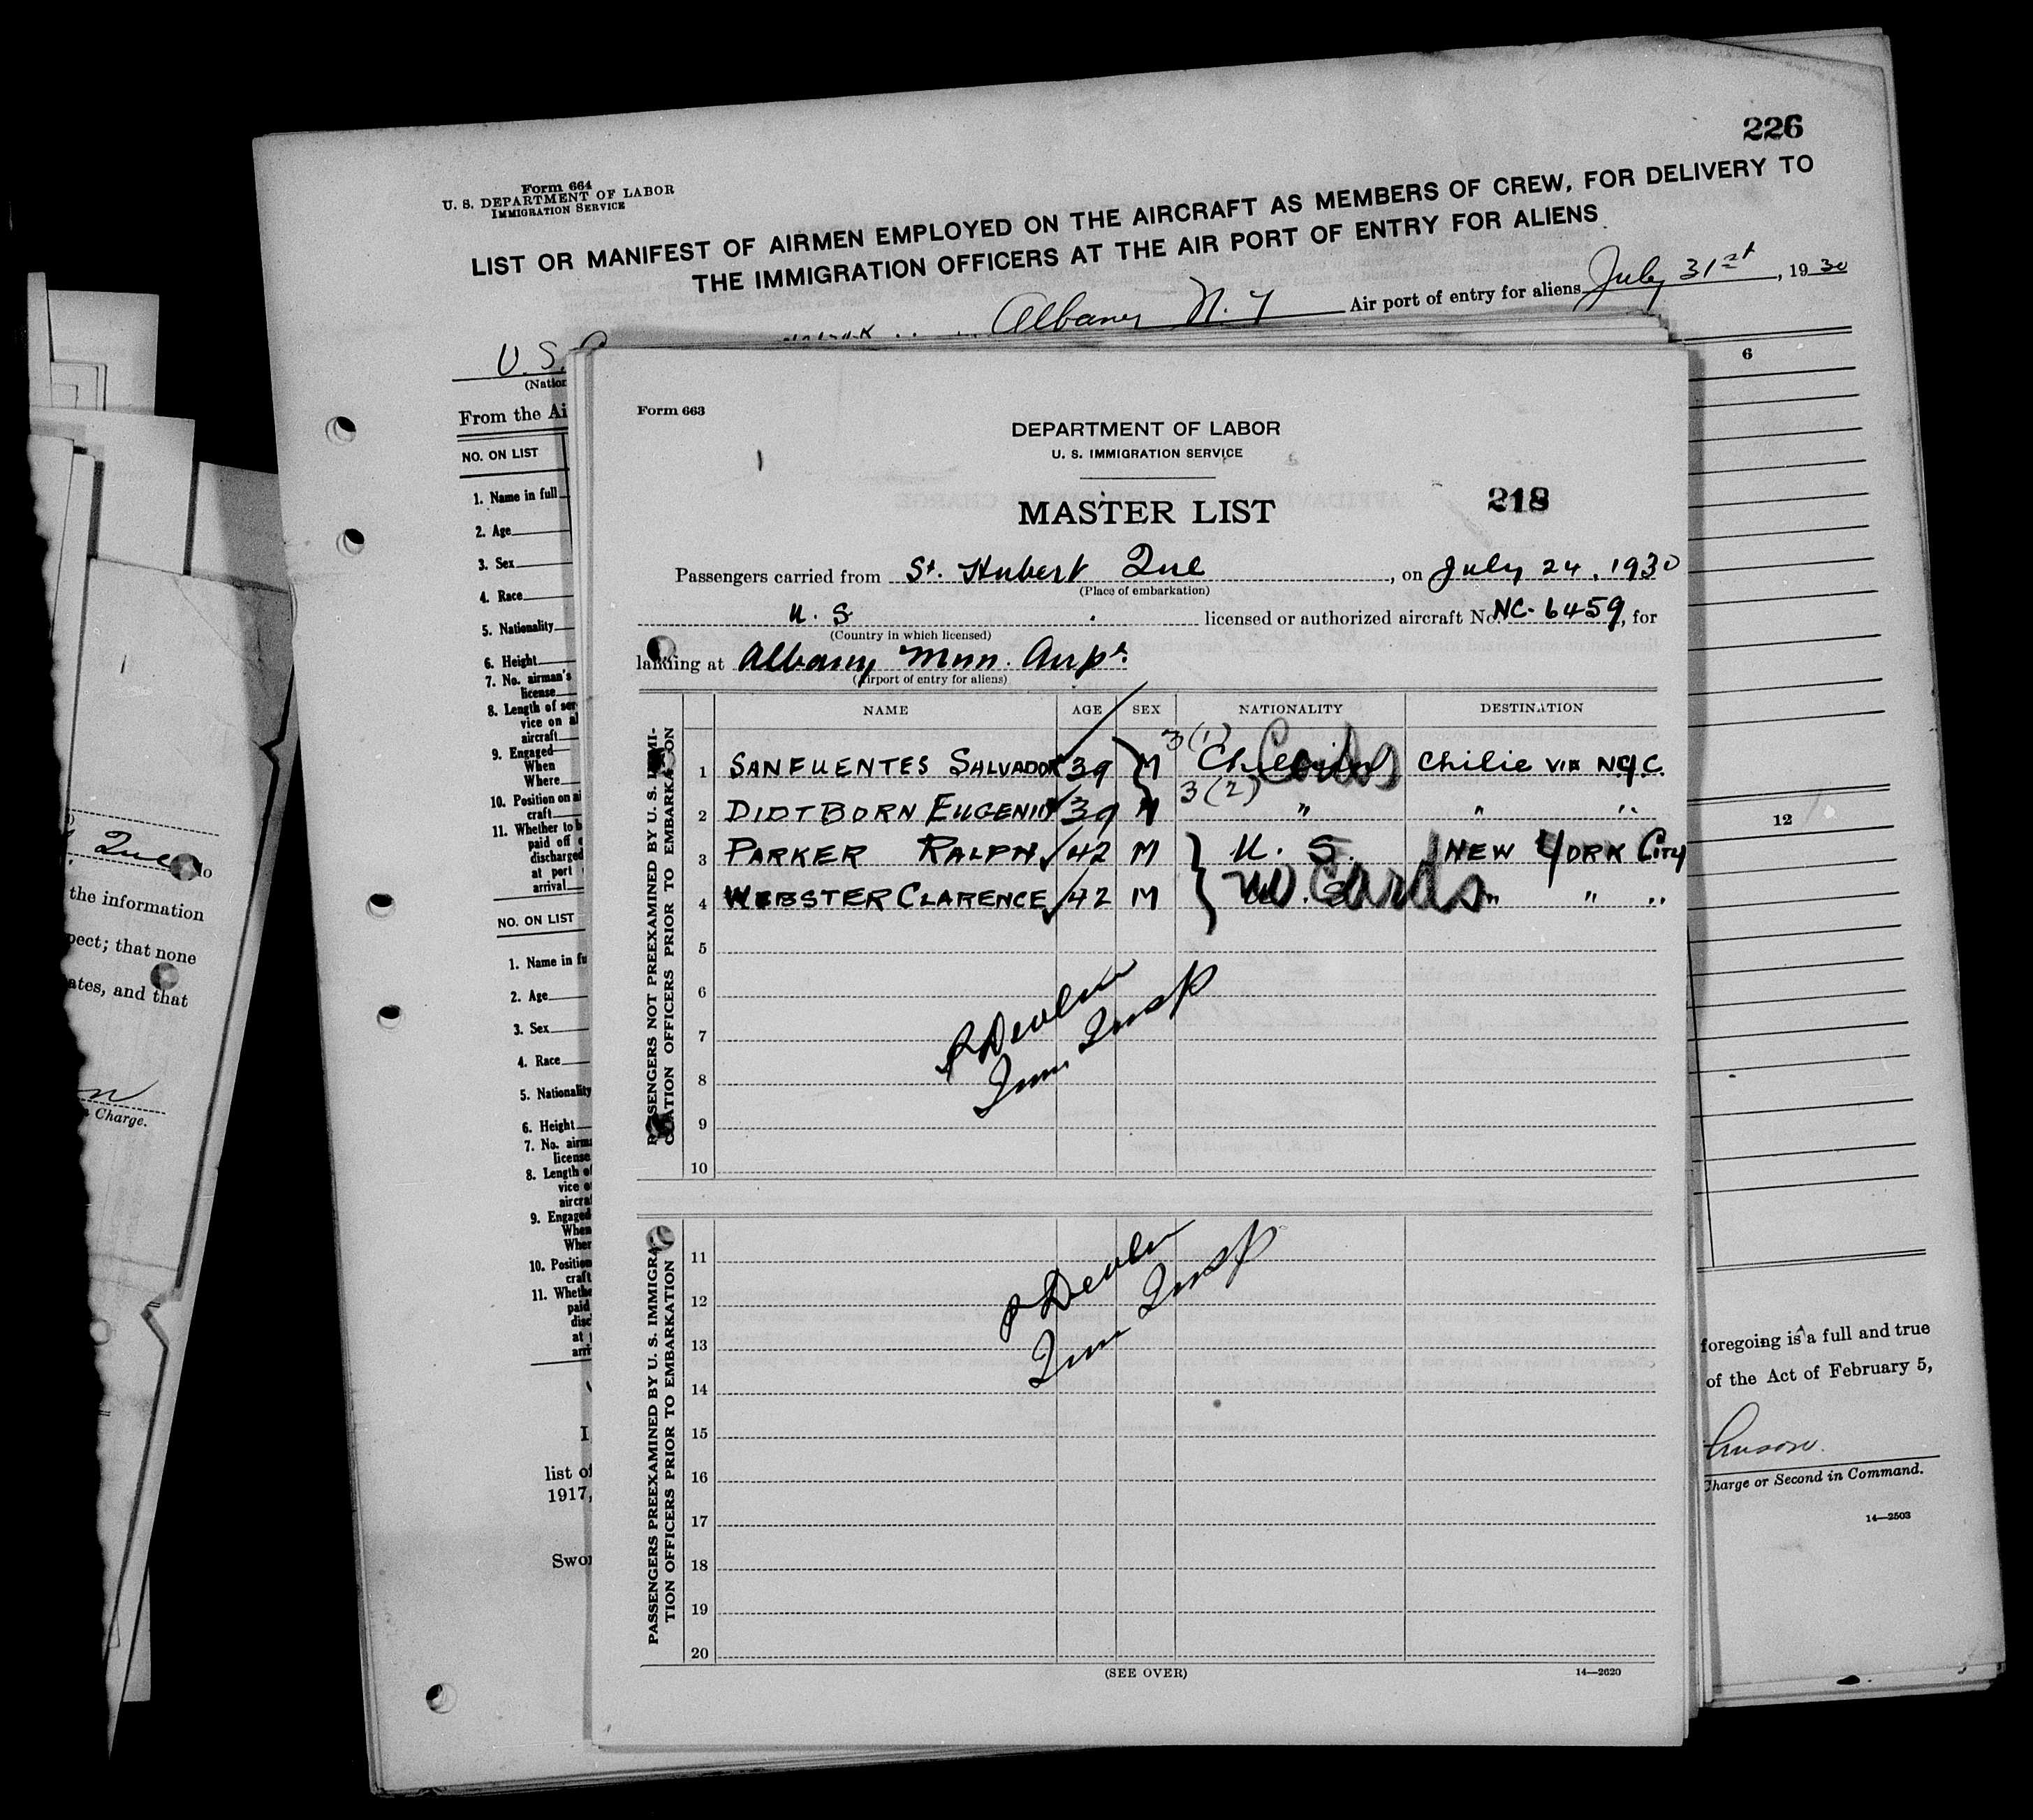 226
Form 664
U. S. DEPARTMENT OF LABOR
IMMIGRATION SERVICE
LIST OR MANIFEST OF AIRMEN EMPLOYED ON THE AIRCRAFT AS MEMBERS OF CREW, FOR DELIVERY TO
THE IMMIGRATION OFFICERS AT THE AIR PORT OF ENTRY FOR ALIENS
Albany N. Y Air port of entry for aliens July 31st, 1930
U. S.
(Nation
From the Ai
6
NO. ON LIST
1. Name in full
2. Age
3. Sex
4. Race
5. Nationality
6. Height
7. No. airman's
license
8. Length of ser
vice on al
aircraft
9. Engaged
When
Where
10. Position on ai
craft
11. Whether to b
paid off
discharged
at port
arrival
12
NO. ON LIST
1. Name in fu
2. Age
3. Sex
4. Race
5. Nationality
6. Height
7. No. airma
license
8. Length of
vice o
aircra
9. Engaged
When
Wher
10. Position
craft
11. Wheth
paid
disc
at
arri
I
list of
1917,
Swo
foregoing is a full and true
of the Act of February 5,
Charge or Second in Command.
14—2503
Que
to
the information
pect; that none
ates, and that
Charge.
Form 663
DEPARTMENT OF LABOR
U. S. IMMIGRATION SERVICE
MASTER LIST
218
Passengers carried from St. Hubert Que, on July 24, 1930
(Place of embarkation)
U. S. licensed or authorized aircraft No. NC-6459, for
(Country in which licensed)
landing at Albany Mun. Airpt.
(Airport of entry for aliens)
NAME AGE SEX NATIONALITY DESTINATION
PASSENGERS NOT PREEXAMINED BY U. S. IMMI-
GRATION OFFICERS PRIOR TO EMBARKATION
3(1)
1 SANFUENTES SALVADOR 39 M Cards Chilie VIA NYC.
3(2)
2 DIDTBORN EUGENIO 39 M " " "
3 PARKER RALPH 42 M U. S. NEW YORK CITY
4 WEBSTER CLARENCE 42 M no Cards " " "
5
6
7
8
9
10
P Devlin
Imm Insp
PASSENGERS PREEXAMINED BY U. S. IMMIGRA-
TION OFFICERS PRIOR TO EMBARKATION
11
12
13
14
15
16
17
18
19
20
P Devlin
Imm Insp
(SEE OVER)
14—2620